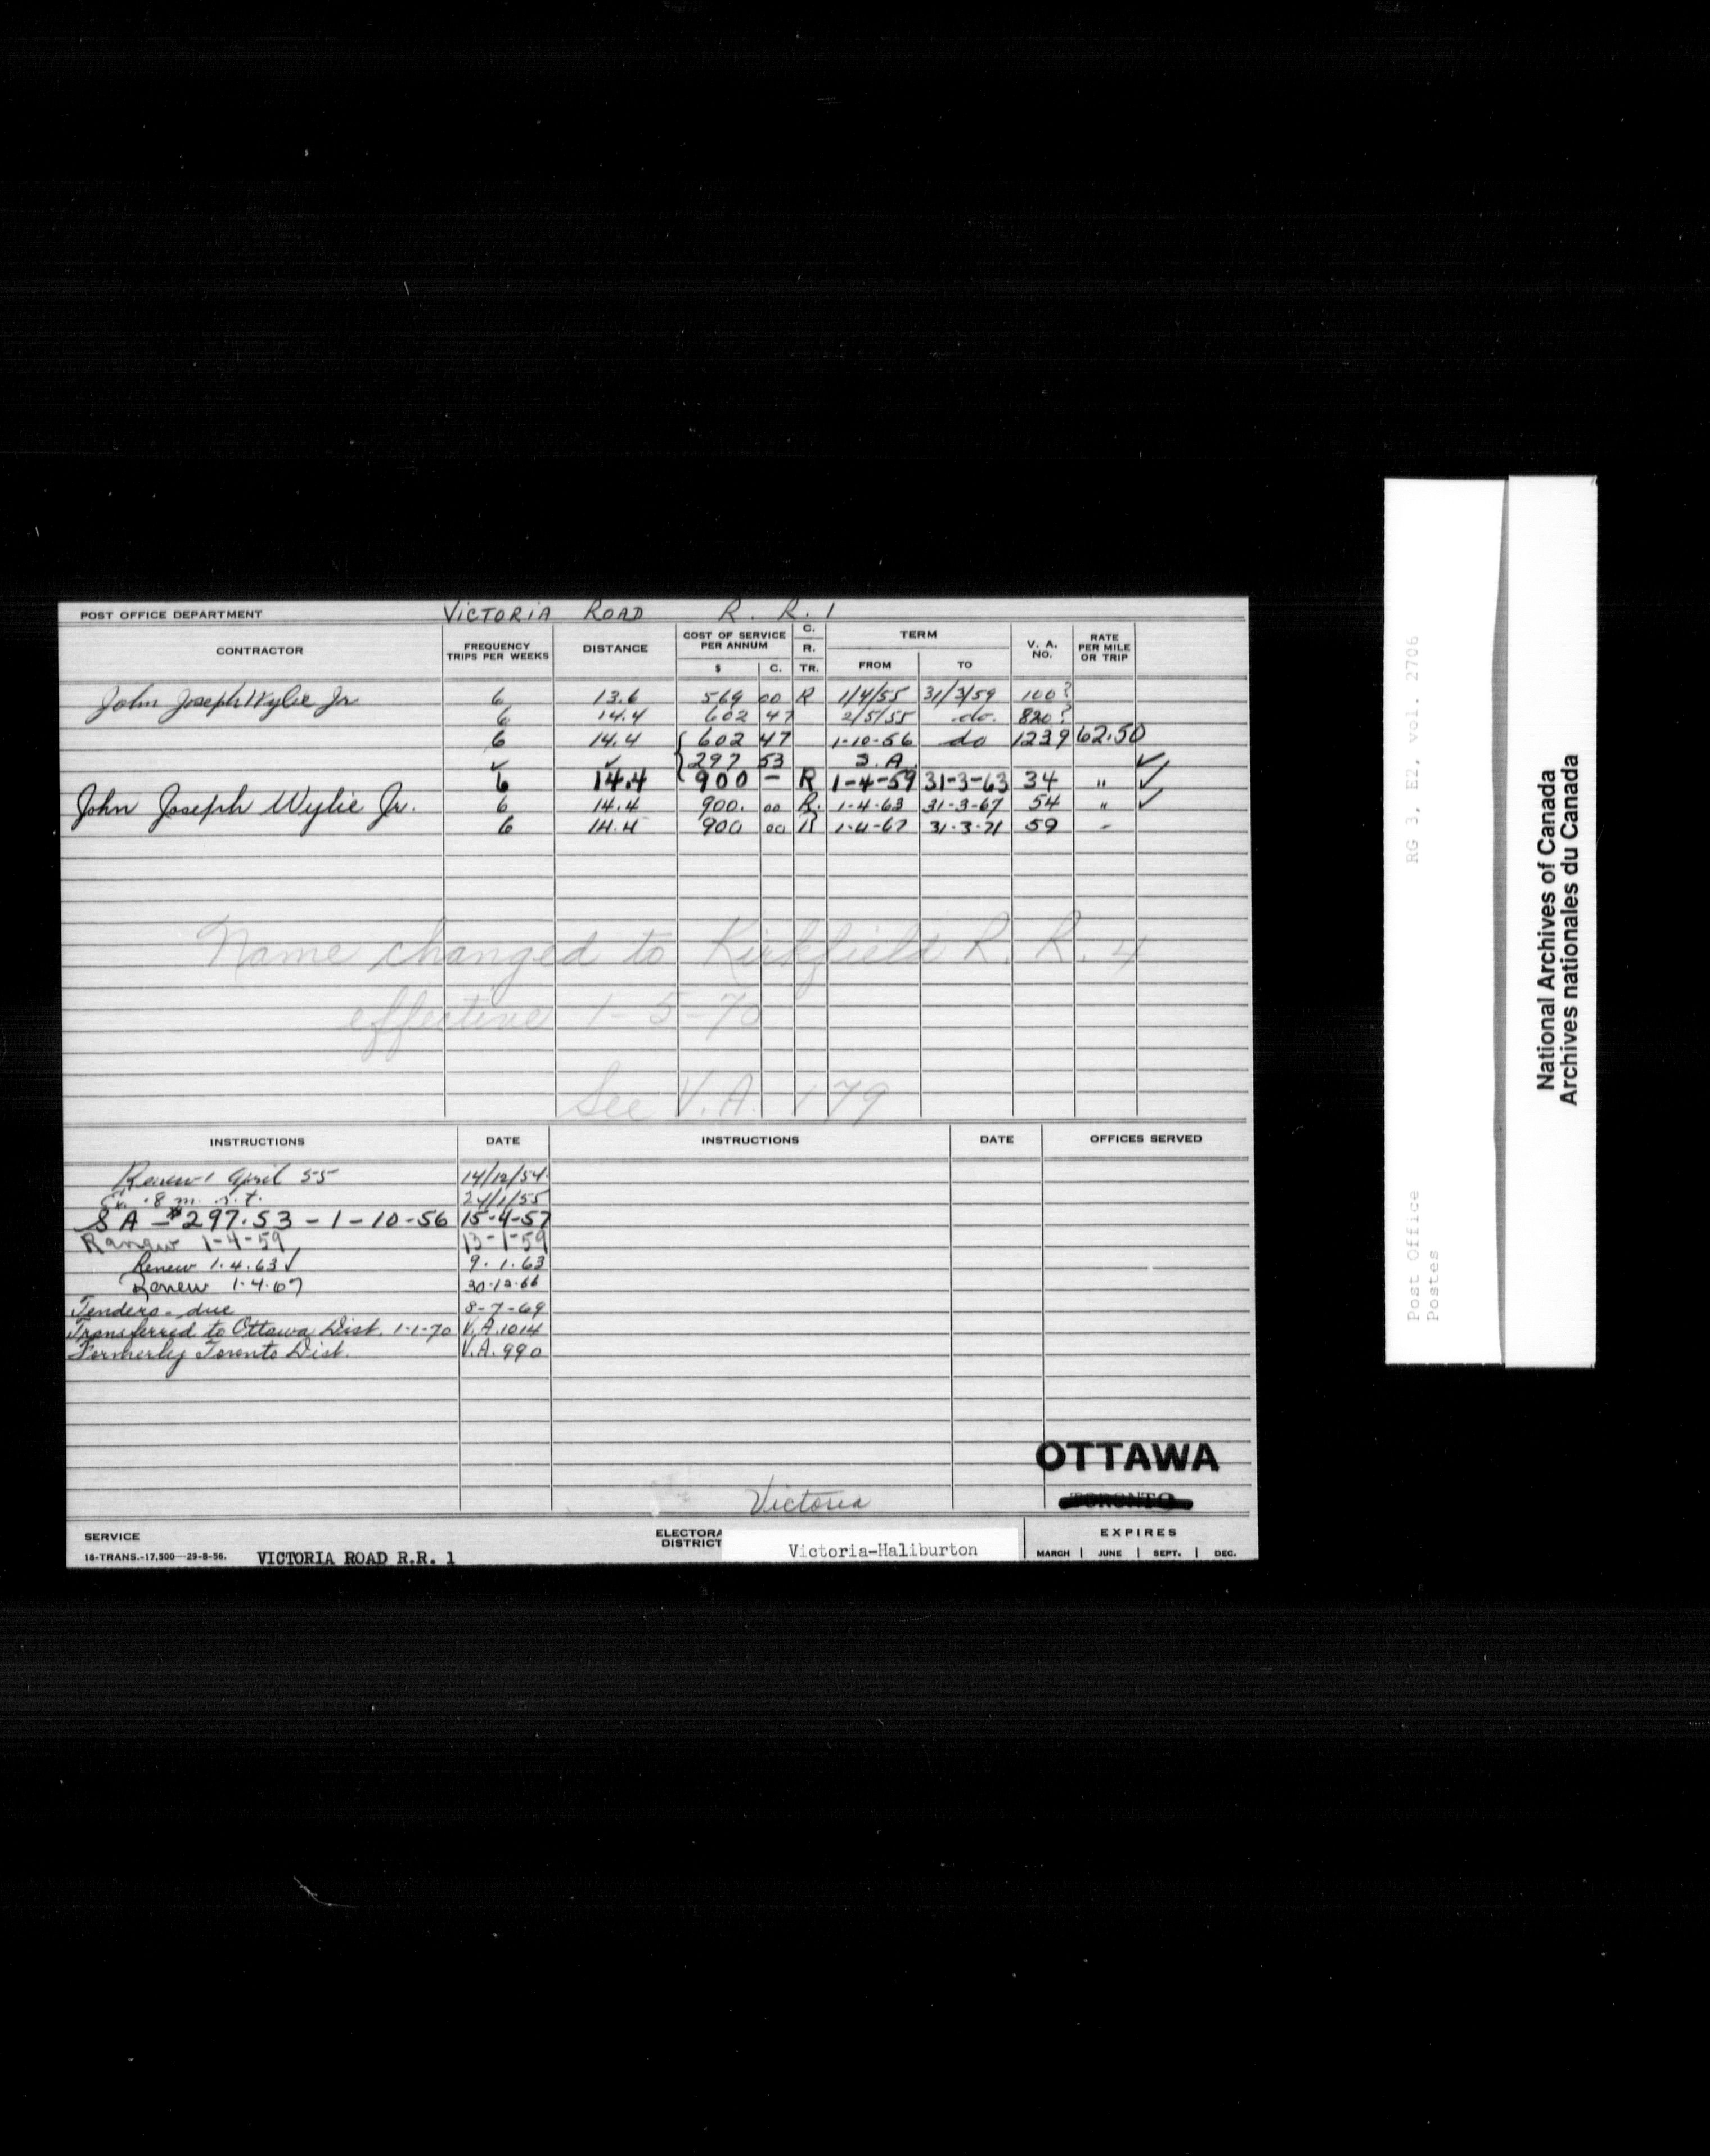 POST OFFICE DEPARTMENT VICTORIA ROAD R. R. 1
CONTRACTOR FREQUENCY TRIPS PER WEEKS DISTANCE COST OF SERVICE PER ANNUM $ C. C. R. TR. TERM FROM TO V. A. NO. RATE PER MILE OR TRIP
John Joseph Wylie Jr 6 13.6 569 00 R 1/4/55 31/3/59 100?
6 14.4 602 47 2/5/55 .do. 820?
6 14.4 602 47 1-10-56 do 1239 62.50
✓ ✓ 297 53 S.A. ✓
6 14.4 900 - R 1-4-59 31-3-63 34 " ✓
John Joseph Wylie Jr. 6 14.4 900. 00 R. 1-4-63 31-3-67 54 " ✓
6 14.4 900 00 R 1-4-67 31-3-71 59 -
Name changed to Kirkfield R. R. 4
effective 1-5-70
See V.A. 179
INSTRUCTIONS DATE INSTRUCTIONS DATE OFFICES SERVED
Renew 1 April 55 14/12/54
.8 m. r.t. 24/1/55
S A - $297.53 - 1-10-56 15-4-57
Renew 1-4-59 13-1-59
Renew 1.4.63 ✓ 9.1.63
Renew 1.4.67 30-12-66
Tenders - due 8-7-69
Transferred to Ottawa Dist. 1-1-70 V.A. 1014
Formerly Toronto Dist. V.A. 990
OTTAWA
Victoria TORONTO
SERVICE
18-TRANS.-17,500—29-8-56. VICTORIA ROAD R.R. 1
ELECTORA
DISTRICT Victoria-Haliburton
EXPIRES
MARCH | JUNE | SEPT. | DEC.
RG 3, E2, vol. 2706
Post Office
Postes
National Archives of Canada
Archives nationales du Canada